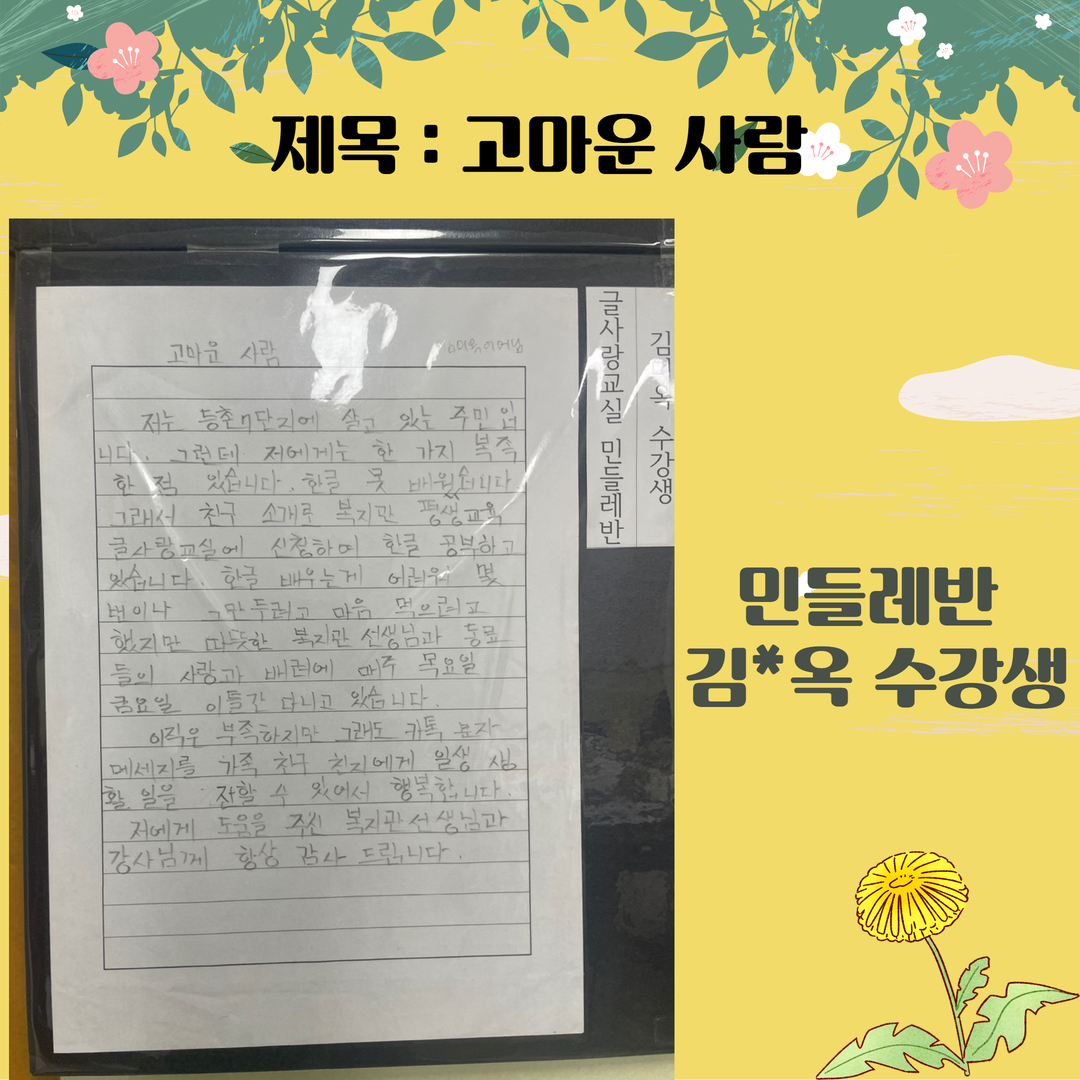 제목 : 고마운 사람
고마운 사람
저는 등촌7단지에 살고 있는 주민입
니다. 그런데 저에게는 한 가지 부족
한 점 있습니다. 한글 못 배웠습니다
그래서 친구 소개로 복지관 평생교육
글사랑교실에 신청하여 한글 공부하고
있습니다. 한글 배우는게 어려워 몇
번이나 그만두려고 마음 먹으려고
했지만 따뜻한 복지관 선생님과 동료
들의 사랑과 배려에 매주 목요일
금요일 이틀간 다니고 있습니다.
아직은 부족하지만 그래도 카톡 문자
메세지를 가족 친구 친지에게 일생 생
활 일을 전할 수 있어서 행복합니다.
저에게 도움을 주신 복지관 선생님과
강사님께 항상 감사 드립니다.
글사랑교실 민들레반
김 옥 수강생
민들레반
김*옥 수강생